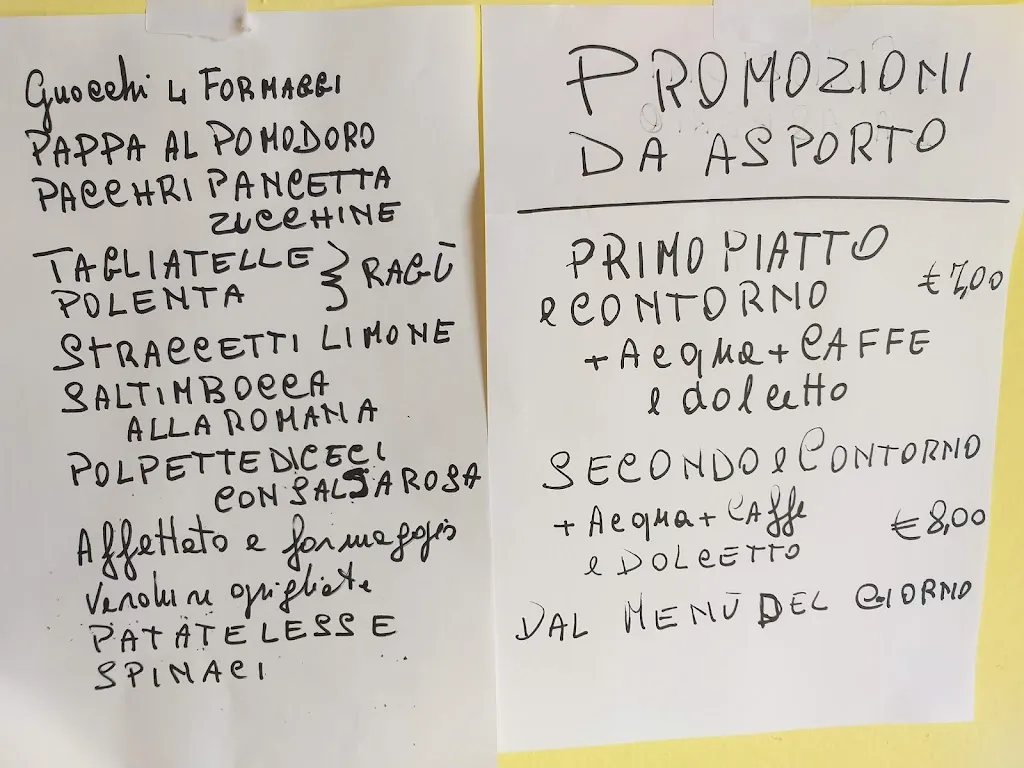 Gnocchi 4 FORMAGGI
PAPPA AL POMODORO
PACCHRI PANCETTA
ZUCCHINE
TAGLIATELLE } RAGÙ
POLENTA
STRACCETTI LIMONE
SALTIMBOCCA
ALLA ROMANA
POLPETTE DI CECI
CON SALSA ROSA
Affettato e formaggio
Verdure grigliate
PATATE LESSE
SPINACI
PROMOZIONI
DA ASPORTO
PRIMO PIATTO
e CONTORNO € 7,00
+ Acqua + CAFFE
e dolcetto
SECONDO e CONTORNO
+ Acqua + CAffe € 8,00
e DOLCETTO
DAL MENÙ DEL GIORNO